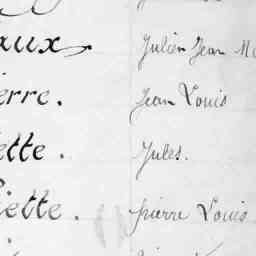 aux Julien Jean
ierre. Jean Louis
ette. Jules.
iette. pierre Louis